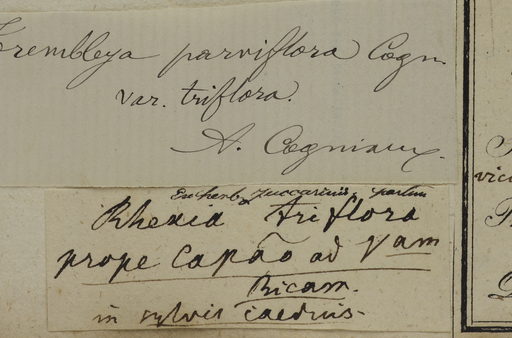 Trembleya parviflora Cogn.
var. triflora.
A. Cogniaux.
Ex herb. Zuccarinii,
Rhexia triflora
prope Capão ad Vam
Ricam.
in sylvis caeduis.